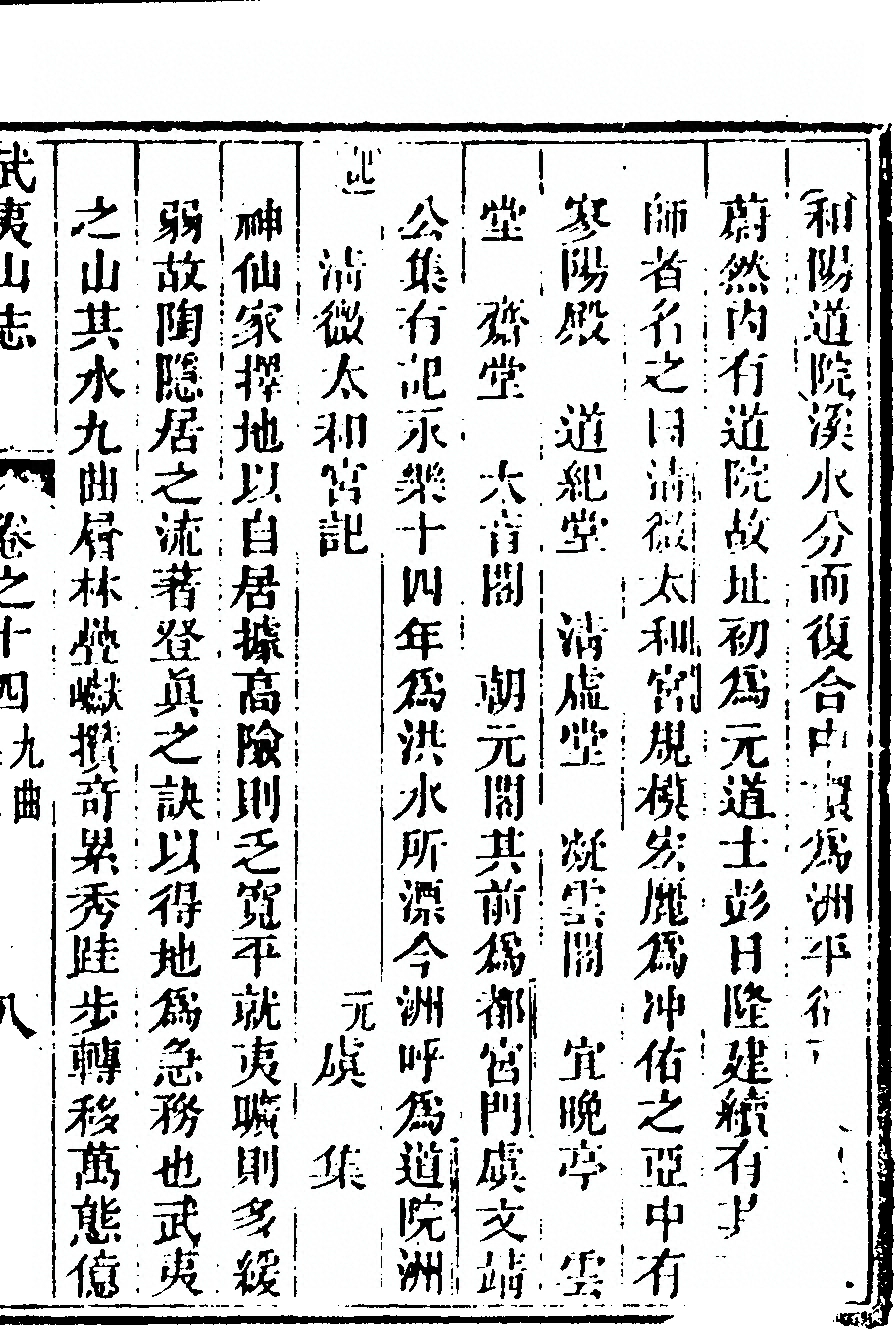 和陽道院溪水分而復合中墳爲洲平衍
蔚然內有道院故址初爲元道士彭日隆建續有
師者名之曰清微太和宮規模宏麗爲冲佑之亞中有
寥陽殿　道紀堂　清虛堂　凝雲閣　宜晚亭　雲
堂　齋堂　大音閣　朝元閣其前爲都宮門虞文靖
公集有記永樂十四年爲洪水所漂今洲呼爲道院洲
記
清微太和宮記　元虞集
神仙家擇地以自居據高險則乏寬平就夷曠則多緩
弱故陶隱居之流著登眞之訣以得地爲急務也武夷
之山其水九曲層林疊巘攢奇累秀跬步轉移萬態億
武夷山志　卷之十四　九曲　八